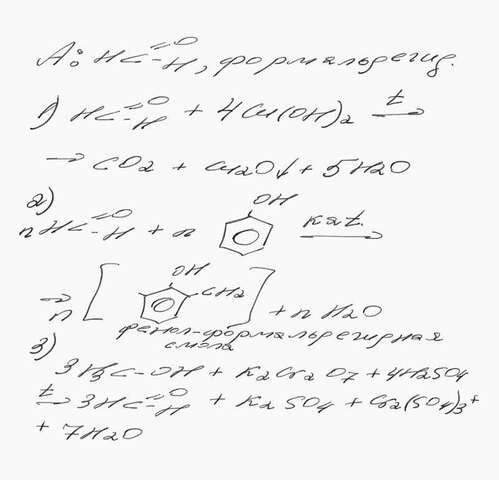 A: HC=O-H, формальдегид.
1) HC=O-H + 4Cu(OH)2 t→
→ CO2 + Cu2O↓ + 5H2O
2)
OH
nHC=O-H + n кат.→
OH
→ n [ CH2 ] + nH2O
фенол-формальдегидная
смола
3)
3H3C-OH + K2Cr2O7 + 4H2SO4
t→ 3HC=O-H + K2SO4 + Cr2(SO4)3 +
+ 7H2O